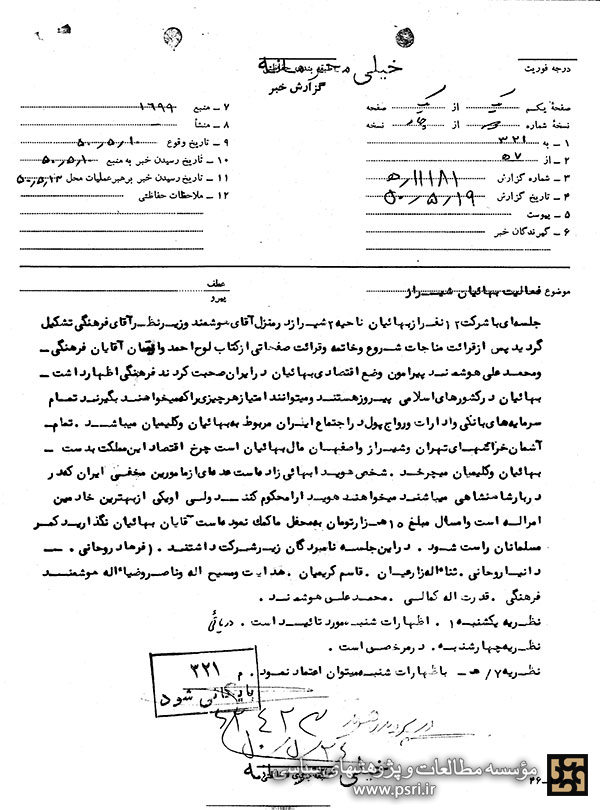 خیلی محرمانه
درجه فوریت
گزارش خبر
صفحهٔ یکم یک از یک صفحه
نسخهٔ شماره از نسخه
۱ – به ۳۲۱
۲ – از ۵۷
۳ – شماره گزارش ۵/۱۱۱۸۱
۴ – تاریخ گزارش ۵۰/۵/۱۹
۵ – پیوست
۶ – گیرندگان خبر
۷ – منبع ۱۶۹۹
۸ – منشأ –
۹ – تاریخ وقوع ۵۰/۵/۱۰
۱۰ – تاریخ رسیدن خبر به منبع ۵۰/۵/۱۰
۱۱ – تاریخ رسیدن خبر برهبر عملیات محل ۵۰/۵/۱۳
۱۲ – ملاحظات حفاظتی
موضوع فعالیت بهائیان شیراز
عطف
پیرو
جلسه‌ای با شرکت ۱۲ نفر از بهائیان ناحیه ۲ شیراز در منزل آقای هوشمند و زیر نظر آقای فرهنگی تشکیل
گردید پس از قرائت مناجات شروع و خاتمه و قرائت صفحاتی از کتاب لوح احمد و آقایان فرهنگی –
و محمد علی هوشمند پیرامون وضع اقتصادی بهائیان در ایران صحبت کردند فرهنگی اظهار داشت –
بهائیان در کشورهای اسلامی پیروز هستند و میتوانند امتیاز هر چیزی را که میخواهند بگیرند تمام
سرمایه‌های بانکی و ادارات و رواج پول در اجتماع ایران مربوط به بهائیان و کلیمیان میباشد . تمام
آسمان خراشهای تهران و شیراز و اصفهان مال بهائیان است چرخ اقتصاد این مملکت بدست –
بهائیان و کلیمیان میچرخد . شخص هویدا بهائی زاده است عده‌ای از مامورین مخفی ایران که در
دربار شاهنشاهی میباشند میخواهند هویدا را محکوم کنند ولی او یکی از بهترین خادمین
امراله است و امسال مبلغ ۱۵ هزار تومان به محفل ما کمک نموده است آقایان بهائیان نگذارید کمر
مسلمانان راست شود . در این جلسه نامبردگان زیر شرکت داشتند . ( فرهاد روحانی . –
دانیا روحانی . ثناءاله زارعیان . قاسم کریمیان . هدایت و مسیح اله و ناصر و ضیاءاله هوشمند
فرهنگی . قدرت اله کمالی . محمد علی هوشمند .
نظریه یکشنبه ۱ . اظهارات شنبه مورد تائید است . دریائی
نظریه چهارشنبه . در مرخصی است .
نظریه ۷/ﻫ – باظهارات شنبه میتوان اعتماد نمود . م
۳۲۱
بایگانی شود
خیلی محرمانه
۴۶
مؤسسه مطالعات و پژوهشهای سیاسی
www.psri.ir